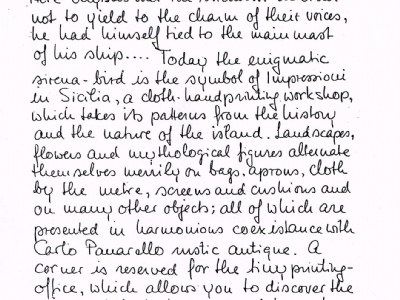 not to yield to the charm of their voices,
he had himself tied to the main mast
of his ship.... Today the enigmatic
sirena-bird is the symbol of Impressioni
in Sicilia, a cloth-handprinting workshop,
which takes its patterns from the history
and the nature of the island. Landscapes,
flowers and mythological figures alternate
themselves merrily on bags, aprons, cloth
by the metre, screens and cushions and
on many other objects; all of which are
presented in harmonious coexistance with
Carlo Panarello rustic antique. A
corner is reserved for the tiny printing-
office, which allows you to discover the